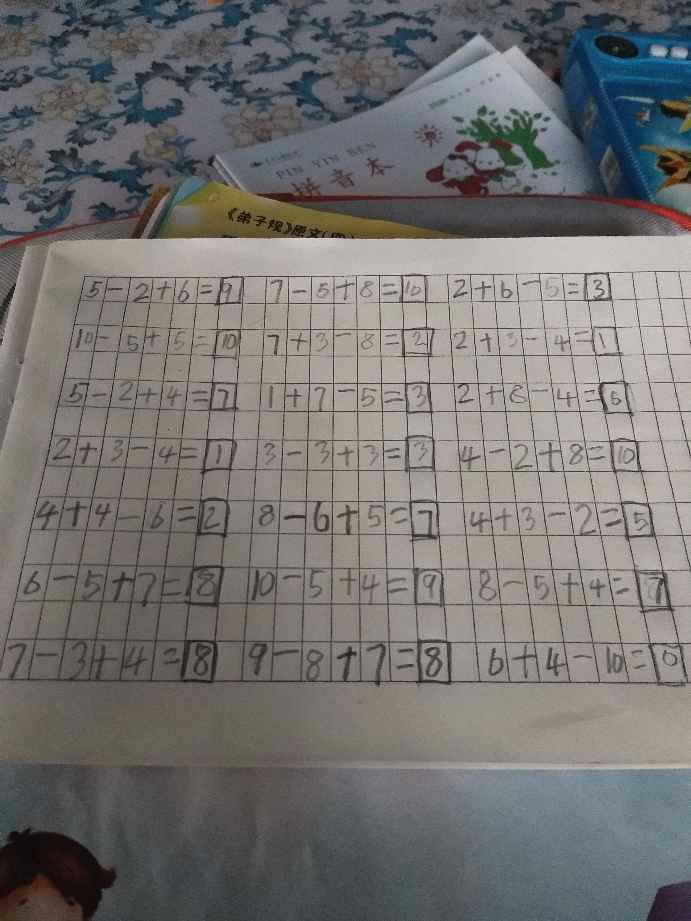 PIN YIN BEN
拼音本
《弟子规》原文(四)
5-2+6=9 7-5+8=10 2+6-5=3
10-5+5=10 7+3-8=2 2+3-4=1
5-2+4=7 1+7-5=3 2+8-4=6
2+3-4=1 3-3+3=3 4-2+8=10
4+4-6=2 8-6+5=7 4+3-2=5
6-5+7=8 10-5+4=9 8-5+4=7
7-3+4=8 9-8+7=8 6+4-10=0